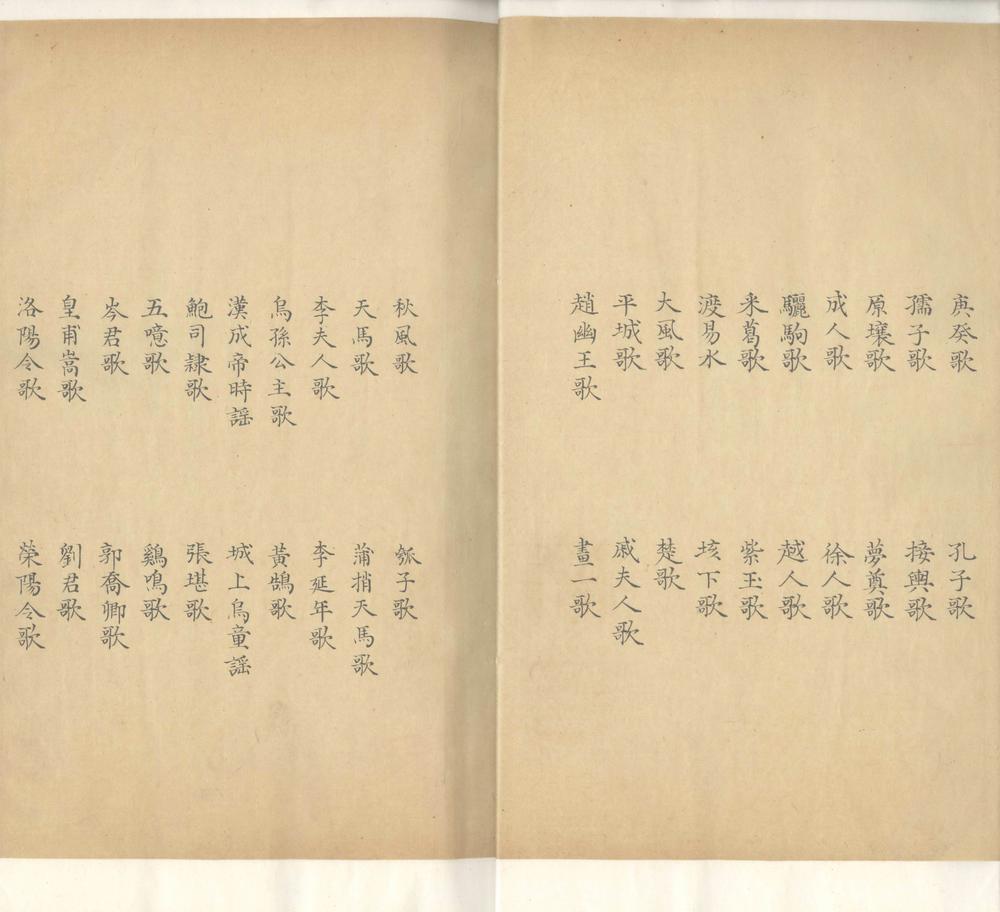 庚癸歌 孔子歌
孺子歌 接輿歌
原壤歌 夢奠歌
成人歌 徐人歌
驪駒歌 越人歌
采葛歌 紫玉歌
渡易水 垓下歌
大風歌 楚歌
平城歌 戚夫人歌
趙幽王歌 畫一歌
秋風歌 瓠子歌
天馬歌 蒲捎天馬歌
李夫人歌 李延年歌
烏孫公主歌 黃鵠歌
漢成帝時謡 城上烏童謡
鮑司隸歌 張堪歌
五噫歌 鷄鳴歌
岑君歌 郭喬卿歌
皇甫嵩歌 劉君歌
洛陽令歌 榮陽令歌